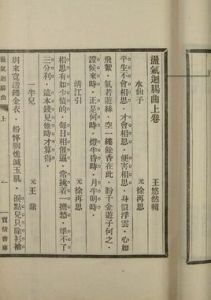 盪氣迴腸曲上卷
王悠然輯
水仙子　元　徐再思
平生不會相思，才會相思，便害相思。身似浮雲，心如
飛絮，氣若遊絲。空一縷餘香在此，盼千金遊子何之。
證候來時，正是何時，燈半昏時，月半明時。
清江引　元　徐再思
相思有如少債的，每日相催逼。常挑著一擔愁，準不了
三分利。這本錢見他時才算得。
一半兒　元　王鼎
別來寬褪縷金衣，粉悴煙憔減玉肌。淚點兒只除衫袖
盪氣迴腸曲　上　一